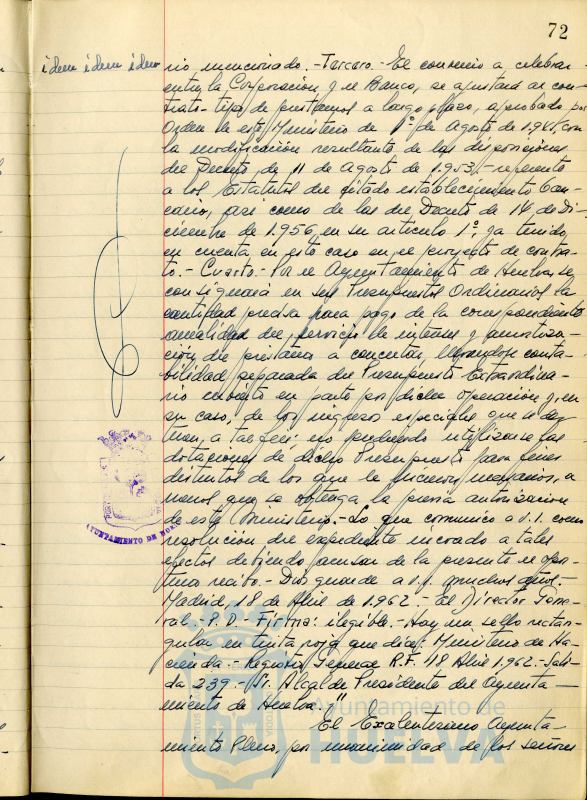 72
idem idem idem
rio mencionado.- Tercero.- El convenio a celebrar
entre la Corporación y el Banco, se ajustará al con-
trato-tipo de préstamos a largo plazo, aprobado por
Orden de este Ministerio de 1º de Agosto de 1.941, con
la modificación resultante de las disposiciones
del Decreto de 11 de Agosto de 1.953,- referente
a los Estatutos del citado establecimiento ban-
cario, así como de las del Decreto de 14 de Di-
ciembre de 1.956, en su artículo 1º, ya tenido
en cuenta en este caso en el proyecto de contra-
to.- Cuarto.- Por el Ayuntamiento de Huelva se
consignará en sus Presupuestos Ordinarios la
cantidad precisa para pago de la correspondiente
anualidad del servicio de interés y amortiza-
ción del préstamo a concertar, llevándose conta-
bilidad separada del Presupuesto Extraordina-
rio cubierto en parte por dicha operación y, en
su caso, de los ingresos especiales que se des-
tinen a tal fin; no pudiendo utilizarse las
dotaciones de dicho Presupuesto para fines
distintos de los que le hicieron necesario, a
menos que se obtenga la previa autorización
de este Ministerio.- Lo que comunico a V.I. como
resolución del expediente incoado a tales
efectos debiendo acusar de la presente el opor-
tuno recibo.- Dios guarde a V.I. muchos años.-
Madrid, 18 de Abril de 1.962.- El Director Gene-
ral.- P.D.- Firma: ilegible.- Hay un sello rectan-
gular en tinta roja que dice: Ministerio de Ha-
cienda.- Registro General R.F. 18 Abril 1.962.- Sali-
da 239.- Sr. Alcalde Presidente del Ayunta-
miento de Huelva."
El Excelentísimo Ayunta-
miento Pleno, por unanimidad de los señores
AYUNTAMIENTO DE
Ayuntamiento de
HUELVA